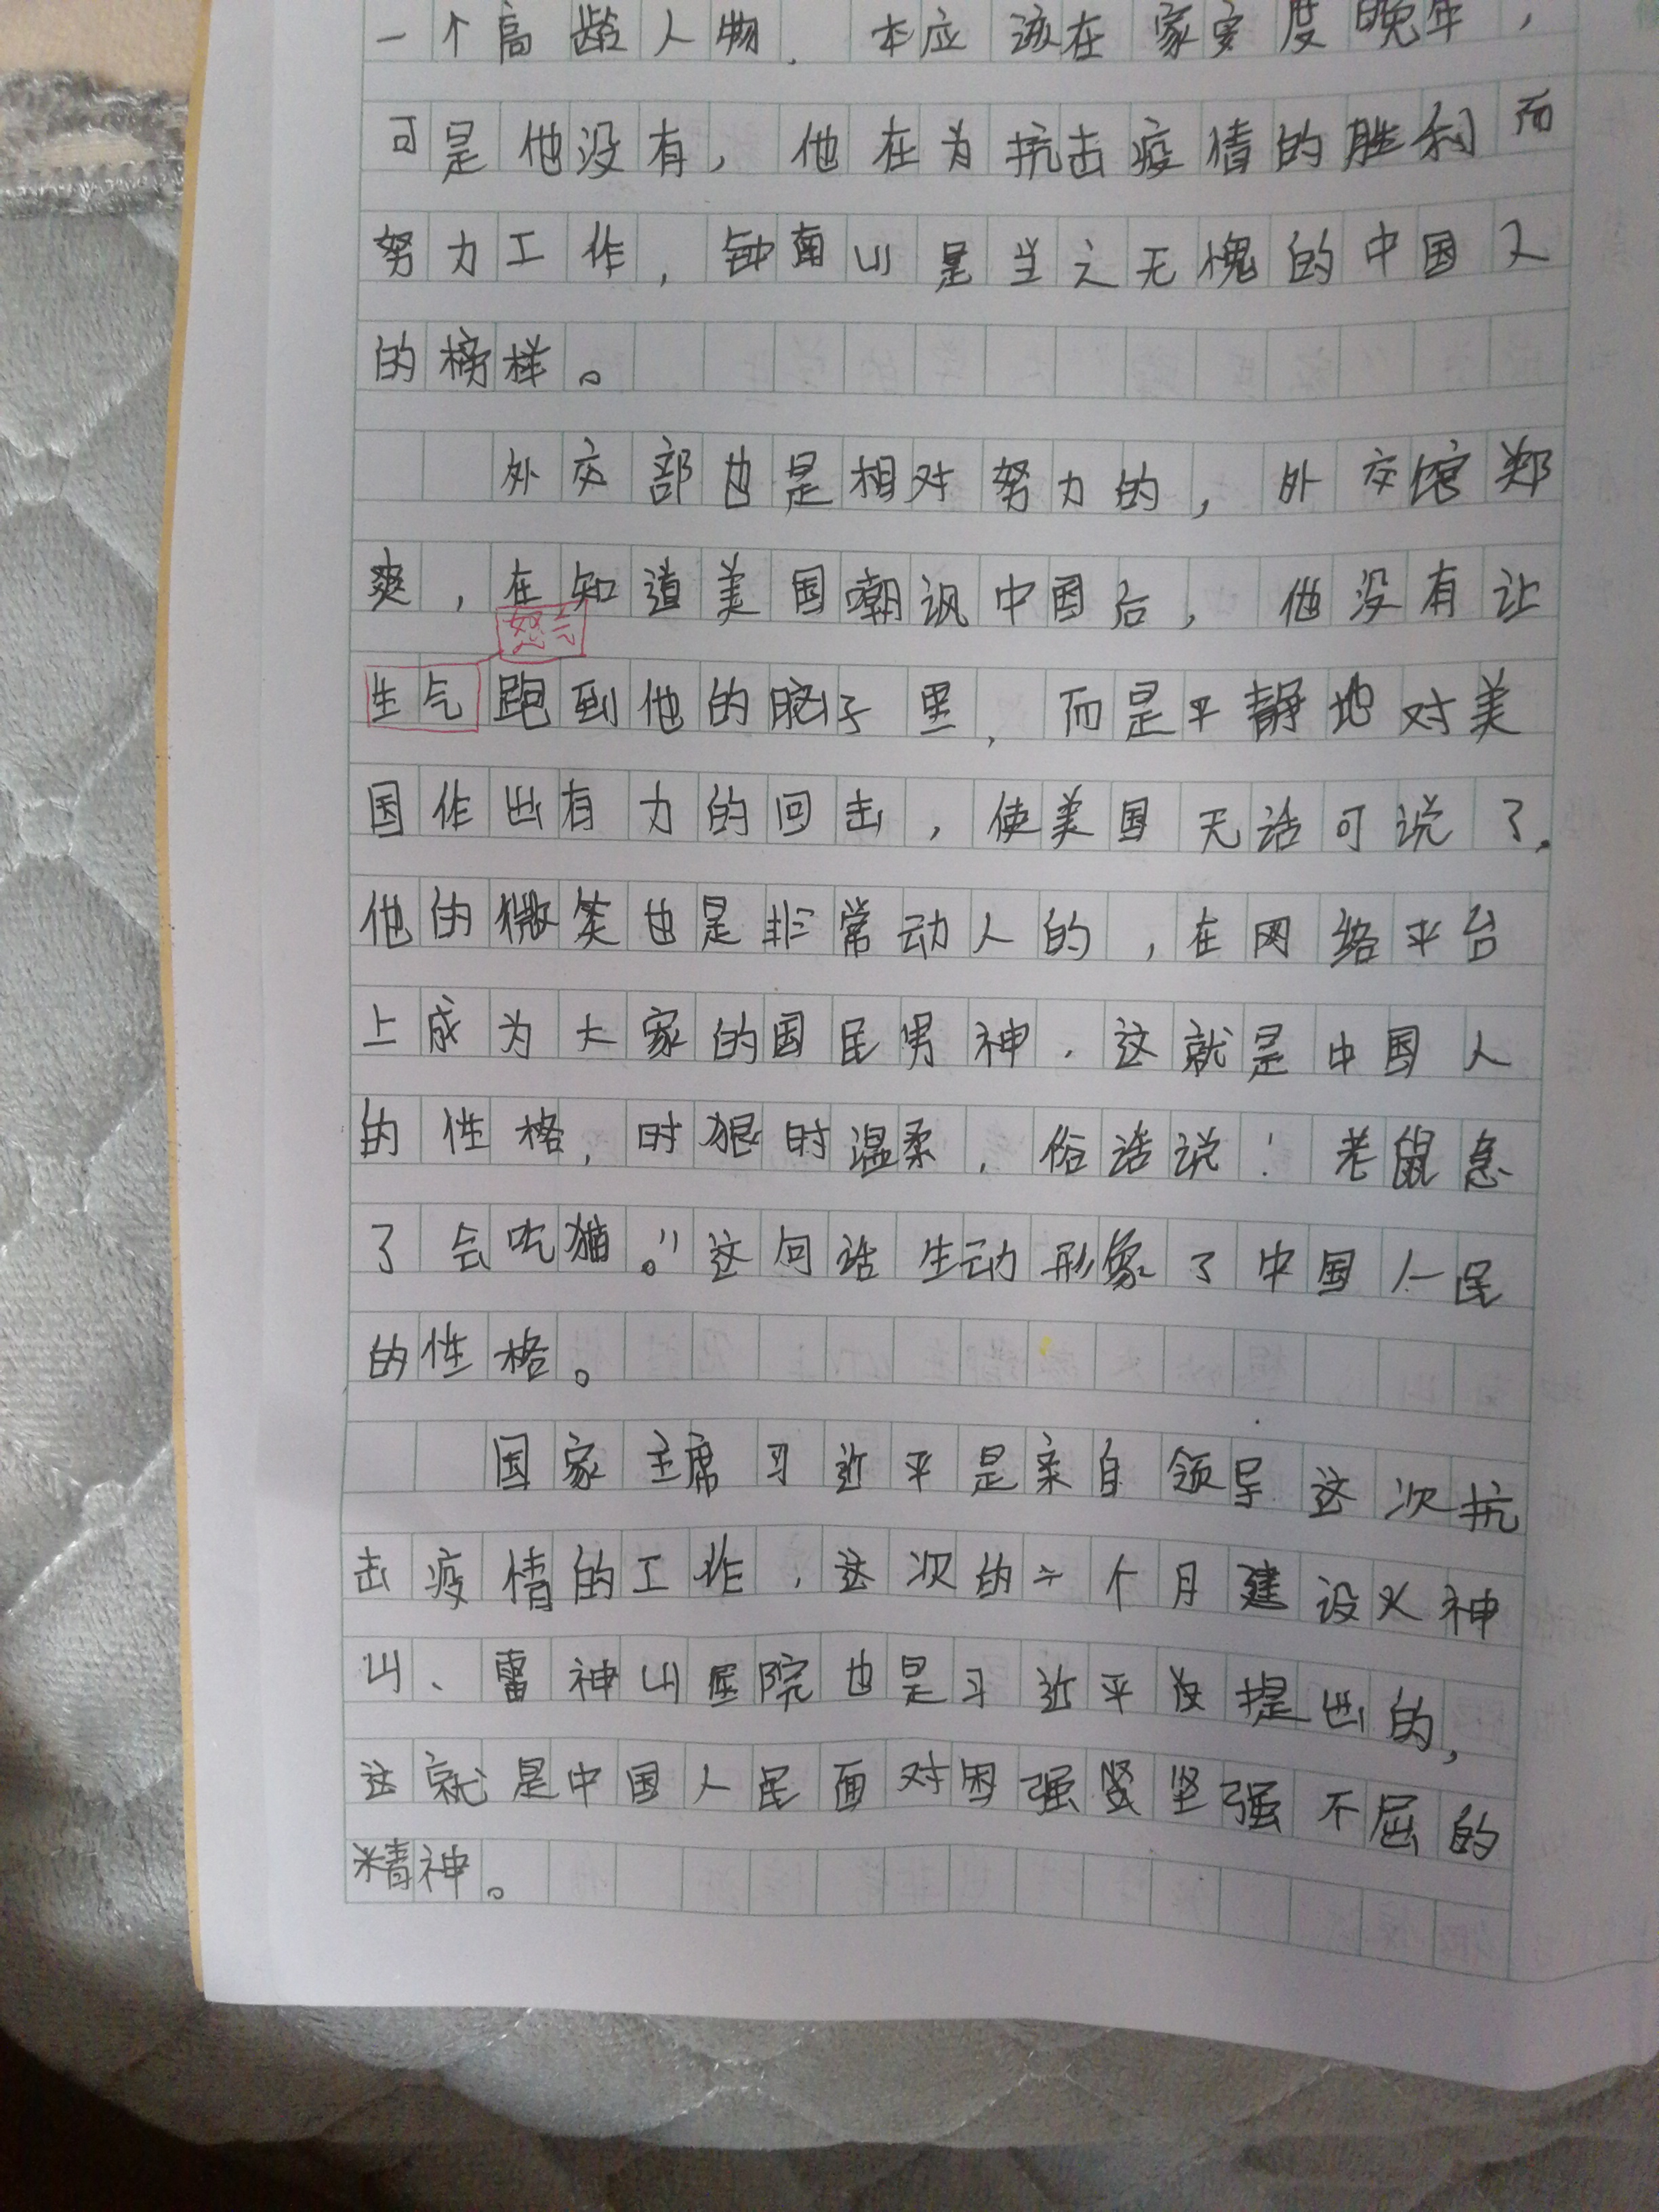 一个高龄人物.本应该在家安度晚年,
可是他没有,他在为抗击疫情的胜利而
努力工作,钟南山是当之无愧的中国人
的榜样。
外交部也是相对努力的,外交馆郑
爽,在知道美国嘲讽中国后,他没有让
怒气
生气跑到他的脑子里,而是平静地对美
国作出有力的回击,使美国无话可说了.
他的微笑也是非常动人的,在网络平台
上成为大家的国民男神.这就是中国人
的性格,时狠时温柔,俗话说:老鼠急
了会吃猫。"这句话生动形象了中国人民
的性格。
国家主席习近平是亲自领导这次抗
击疫情的工作,这次的个月建设火神
山、雷神山医院也是习近平提出的,
这就是中国人民面对困强坚强不屈的
精神。